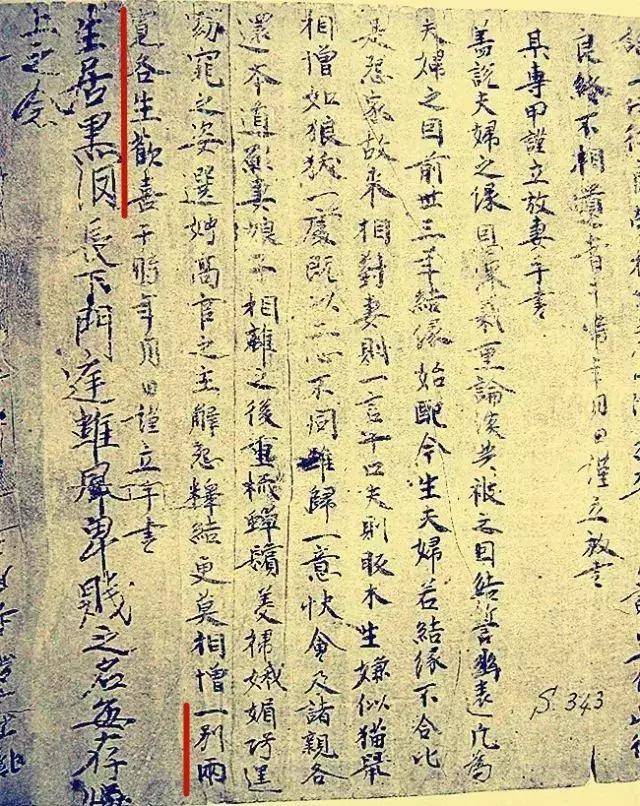 良終不相遺者于時年月日謹立放書
某專甲謹立放妻手書
蓋說夫婦之緣恩深義重論談共被之因結誓幽遠凡為
夫婦之因前世三年結緣始配今生夫婦若結緣不合比
是怨家故來相對妻則一言十口夫則販木生嫌似猫鼠
相憎如狼犾一處既以二心不同難歸一意快會及諸親各
還本道願妻娘子相離之後重梳蟬鬢美掃娥媚巧逞
窈窕之姿選娉高官之主解怨釋結更莫相憎一別兩
寬各生歡喜于時年月日謹立手書
生居黑長下門庭難屏卑賤之名每存
上之念
S.343